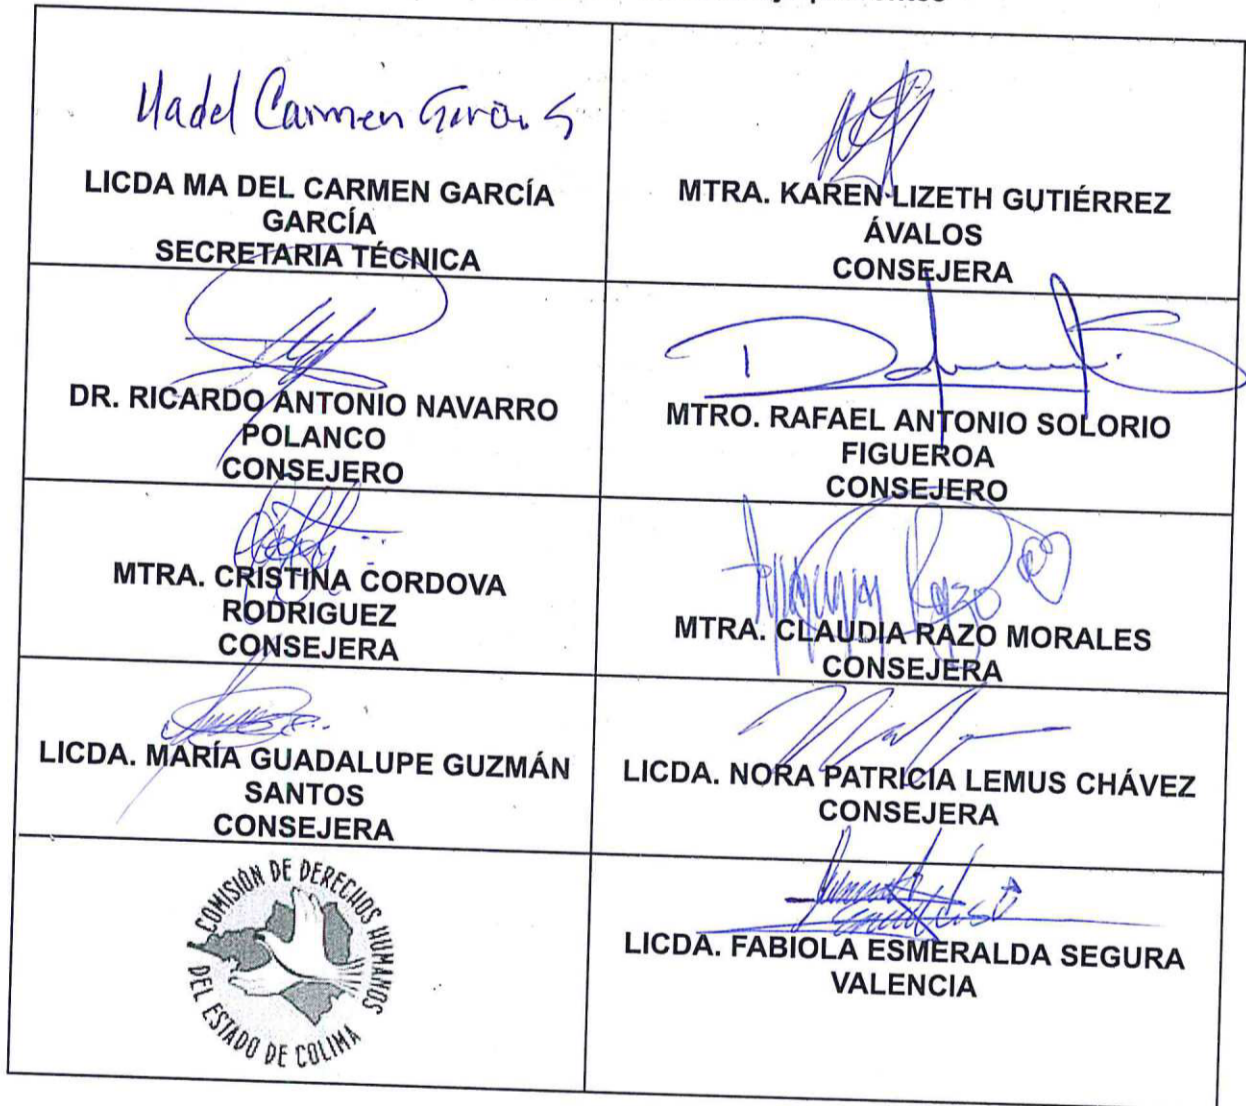 Madel Carmen García G
LICDA MA DEL CARMEN GARCÍA
GARCÍA
SECRETARIA TÉCNICA
MTRA. KAREN LIZETH GUTIÉRREZ
ÁVALOS
CONSEJERA
DR. RICARDO ANTONIO NAVARRO
POLANCO
CONSEJERO
MTRO. RAFAEL ANTONIO SOLORIO
FIGUEROA
CONSEJERO
MTRA. CRISTINA CORDOVA
RODRIGUEZ
CONSEJERA
Razo
MTRA. CLAUDIA RAZO MORALES
CONSEJERA
LICDA. MARÍA GUADALUPE GUZMÁN
SANTOS
CONSEJERA
LICDA. NORA PATRICIA LEMUS CHÁVEZ
CONSEJERA
COMISIÓN DE DERECHOS HUMANOS
DEL ESTADO DE COLIMA
LICDA. FABIOLA ESMERALDA SEGURA
VALENCIA